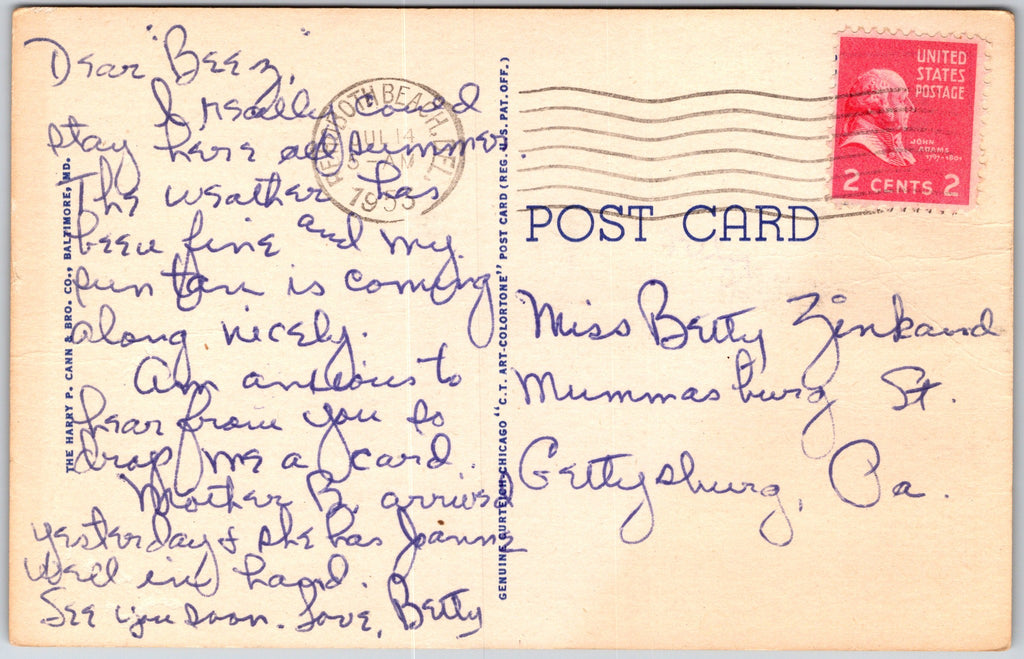 Dear "Beez",
I really could
stay here all summer.
The weather has
been fine and my
sun tan is coming
along nicely.
Am anxious to
hear from you so
drop me a card.
Mother B. arrived
yesterday & she has Joanne
well in hand.
See you soon. Love, Betty
THE HARRY P. CANN & BRO. CO., BALTIMORE, MD.
REHOBOTH BEACH, DEL.
JUL 14
AM
1953
GENUINE CURTEICH-CHICAGO "C.T. ART-COLORTONE" POST CARD (REG. U.S. PAT. OFF.)
UNITED
STATES
POSTAGE
JOHN
ADAMS
1797-1801
2 CENTS 2
POST CARD
Miss Betty Zinkand
Mummasburg St.
Gettysburg, Pa.